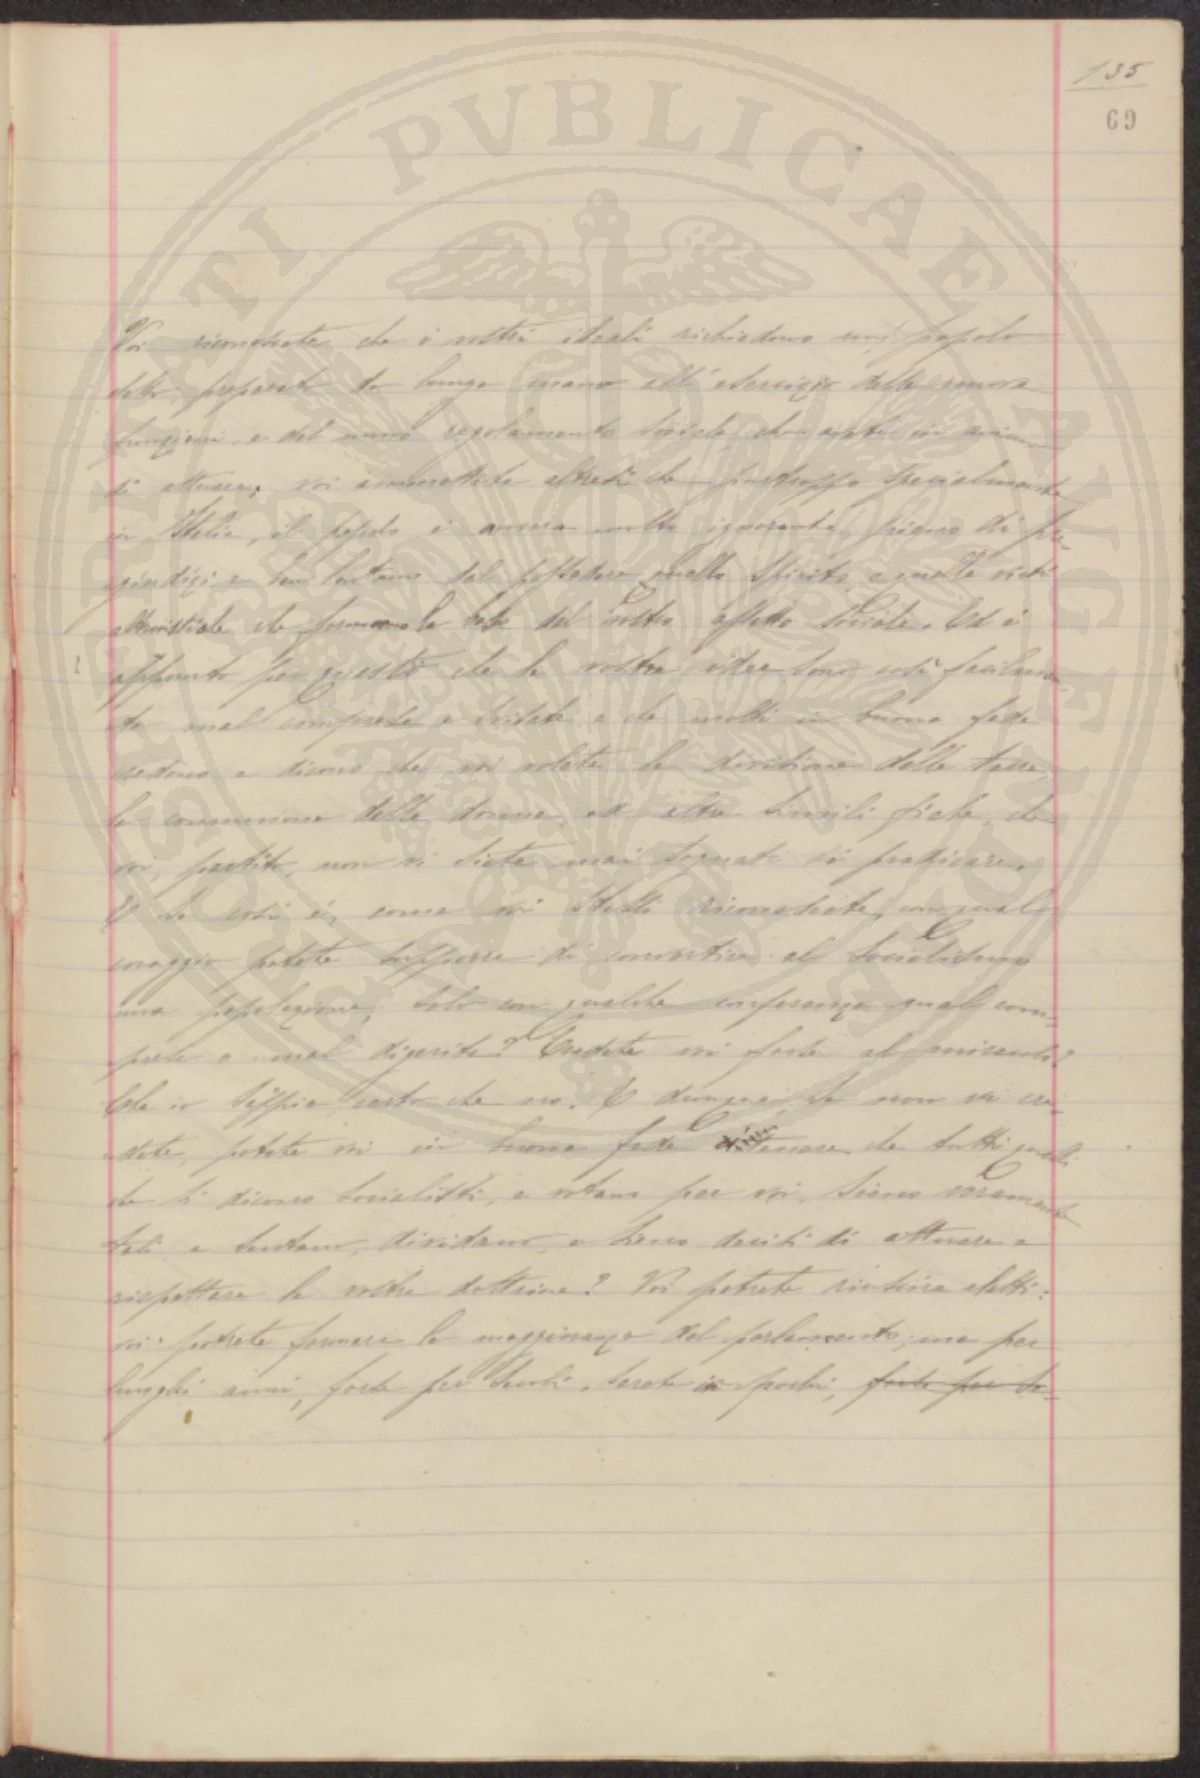 135
69
Voi riconoscete che i vostri ideali richiedono un popolo
preparato da lunga mano all'esercizio delle nuove
funzioni e del nuovo regolamento sociale che avete in animo
di attuare; voi ammettete altresì che purtroppo specialmente
in Italia, il popolo è ancora molto ignorante, pieno di pre-
giudizi e ben lontano dal possedere quello spirito e quelle virtù
altruistiche che formano la base del vostro assetto sociale. Ed è
appunto per questo che le vostre idee sono così facilmen-
te mal comprese e che molti in buona fede
credono e dicono che voi volete la divisione delle terre,
la comunione delle donne, ed altre simili che
voi, partito, non vi siete mai sognati di praticare.
E se così è, come voi stessi riconoscete, con qual
coraggio potete supporre di convertire al socialismo
una popolazione, solo con qualche conferenza mal com-
presa o mal digerita? Credete voi forse ai miracoli?
Che io sappia certo che no. E dunque, se non vi cre-
dete, potete voi in buona fede ritenere che tutti quelli
che si dicono socialisti, e votano per voi, sieno veramente
tali e sentano, dividano, e sieno decisi di attuare e
rispettare le vostre dottrine? Voi potrete riuscire eletti:
voi potrete formare la maggioranza del parlamento, ma per
lunghi anni, forse per secoli, sarete in pochi, forse per se-
PVBLICAE